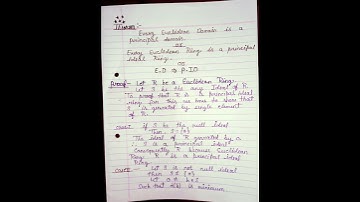 Theorem:-
Every Euclidean Domain is a
principal domain
OR
Every Euclidean Ring is a principal
Ideal Ring.
OR
E.D ⇒ P.I.D
Proof:- Let R be a Euclidean Ring.
Let S be the any Ideal of R.
To prove that R is a principal ideal
ring for this we have to show that
S is generated by single element
of R.
Case I if S be the null Ideal
Then S = {0}
The Ideal of R generated by 0
∴ S is a principal Ideal
Consequently R Euclidean
Ring R is a principal Ideal
Ring.
Case II Let S is not null Ideal
then S ≠ {0}
Let 0 ≠ b ∈ S
Such that d(b) is minimum